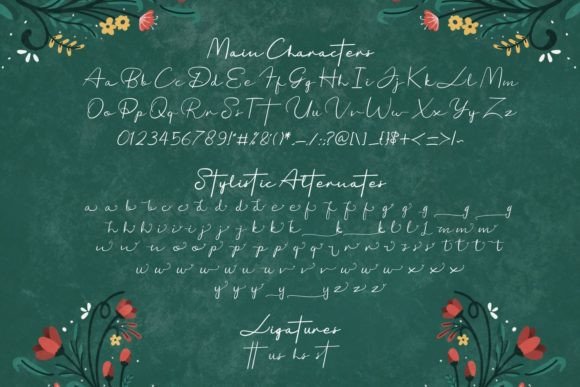 Main Characters
Aa Bb Cc Dd Ee Ff Gg Hh Ii Jj Kk Ll Mm
Oo Pp Qq Rr Ss Tt Uu Vv Ww Xx Yy Zz
0123456789!"#%&'()*,-./:;?@[\]_{|}$+<=>|~
Stylistic Alternates
a a b b c c d d d e e f f f f g g g g g
h h h i i j j k k k k k l l l m m m
n n n o o p p p p q q r r r s s s t t t t
u u u u u v v w w w w x x x
y y y y y z z z
Ligatures
tt us hs st